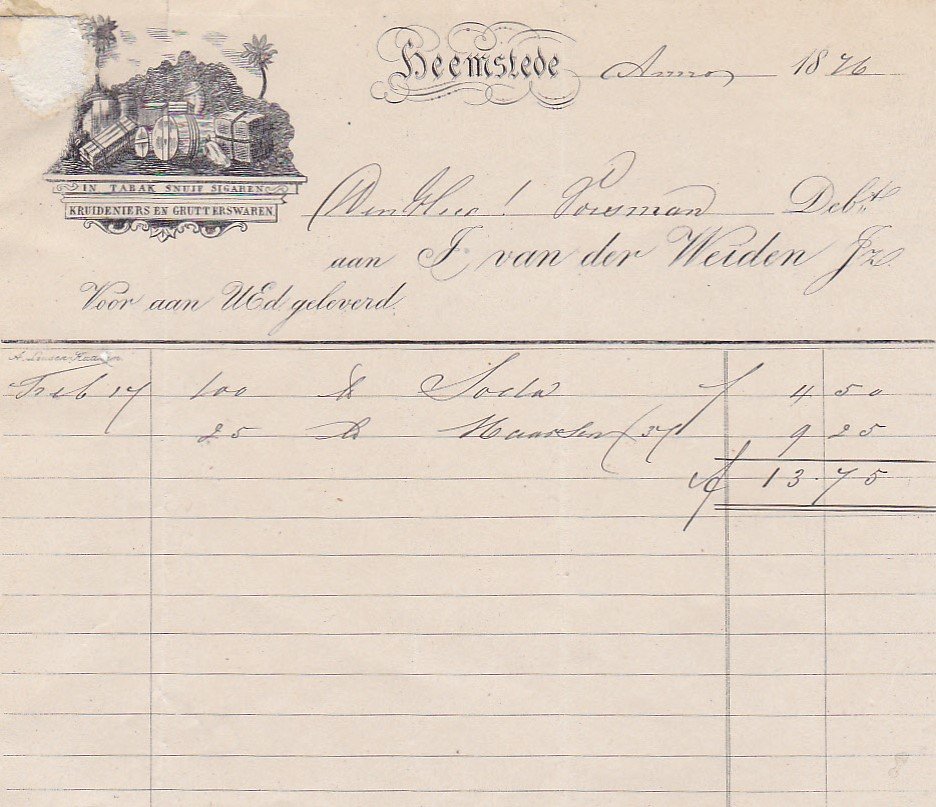 Heemstede Anno 1876
IN TABAK SNUIF SIGAREN
KRUIDENIERS EN GRUTTERSWAREN.
Den Heer! Debt.
aan J. van der Weiden Jz.
Voor aan UEd geleverd.
Feb 17 100 ℔ Soda f 4 50
25 ℔ Kaarsen (37 9 25
f 13.75